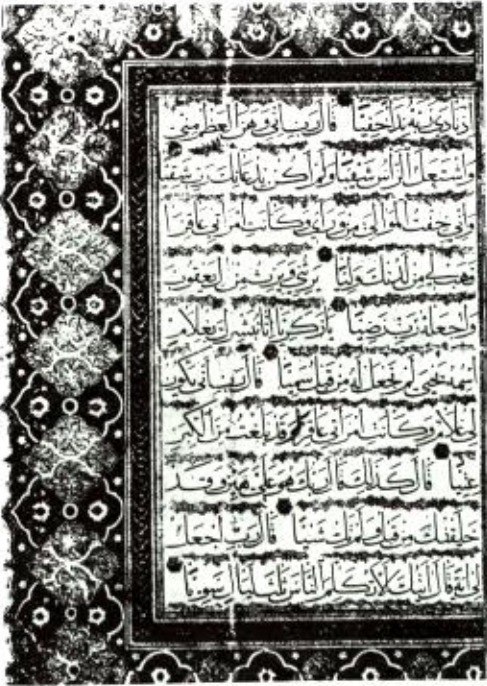 اذ نادى ربه نداء خفيا قال رب إني وهن العظم مني
واشتعل الرأس شيبا ولم أكن بدعائك رب شقيا
وإني خفت الموالي من وراءي وكانت امرأتي عاقرا
فهب لي من لدنك وليا يرثني ويرث من ال يعقوب
واجعله رب رضيا يا زكريا إنا نبشرك بغلام
اسمه يحيى لم نجعل له من قبل سميا قال رب أنى يكون
لي غلام وكانت امرأتي عاقرا وقد بلغت من الكبر
عتيا قال كذلك قال ربك هو علي هين وقد
خلقتك من قبل ولم تك شيئا قال رب اجعل
لي اية قال ايتك ألا تكلم الناس ثلث ليال سويا